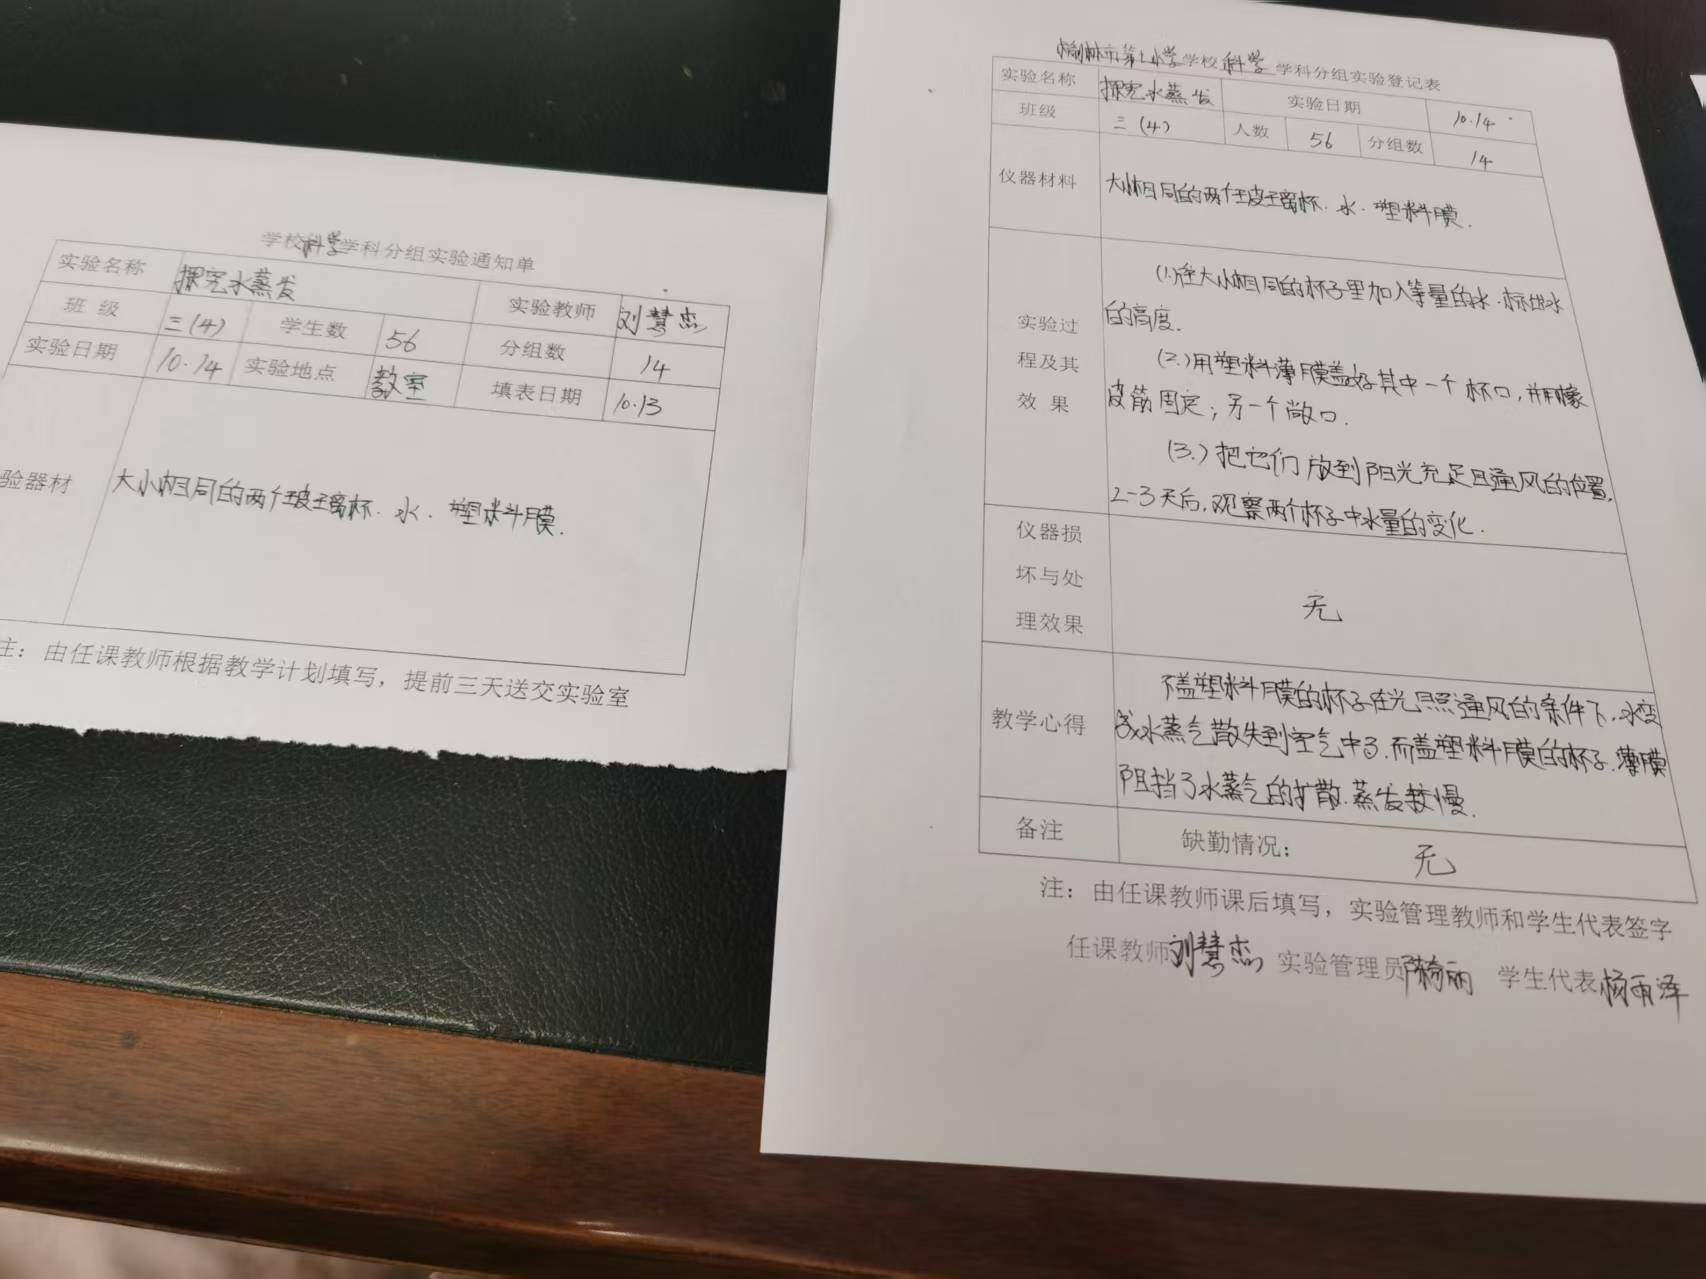 学校科学学科分组实验通知单
实验名称 探究水蒸发 实验教师 刘慧杰
班 级 三(4) 学生数 56 分组数 14
实验日期 10.14 实验地点 教室 填表日期 10.13
验器材 大小相同的两个玻璃杯、水、塑料膜.
注：由任课教师根据教学计划填写，提前三天送交实验室
榆林市第七小学学校科学学科分组实验登记表
实验名称 探究水蒸发 实验日期 10.14
班级 三(4) 人数 56 分组数 14
仪器材料 大小相同的两个玻璃杯、水、塑料膜.
实验过
程及其
效 果
(1.)往大小相同的杯子里加入等量的水.标出水
的高度.
(2.)用塑料薄膜盖好其中一个杯口,并用橡
皮筋固定;另一个敞口.
(3.)把它们放到阳光充足且通风的位置,
2-3天后,观察两个杯子中水量的变化.
仪器损
坏与处
理效果
无
教学心得
不盖塑料膜的杯子在光照通风的条件下,水变
成水蒸气散失到空气中了.而盖塑料膜的杯子.薄膜
阻挡了水蒸气的扩散.蒸发较慢.
备注 缺勤情况： 无
注：由任课教师课后填写，实验管理教师和学生代表签字
任课教师刘慧杰 实验管理员 学生代表杨雨泽